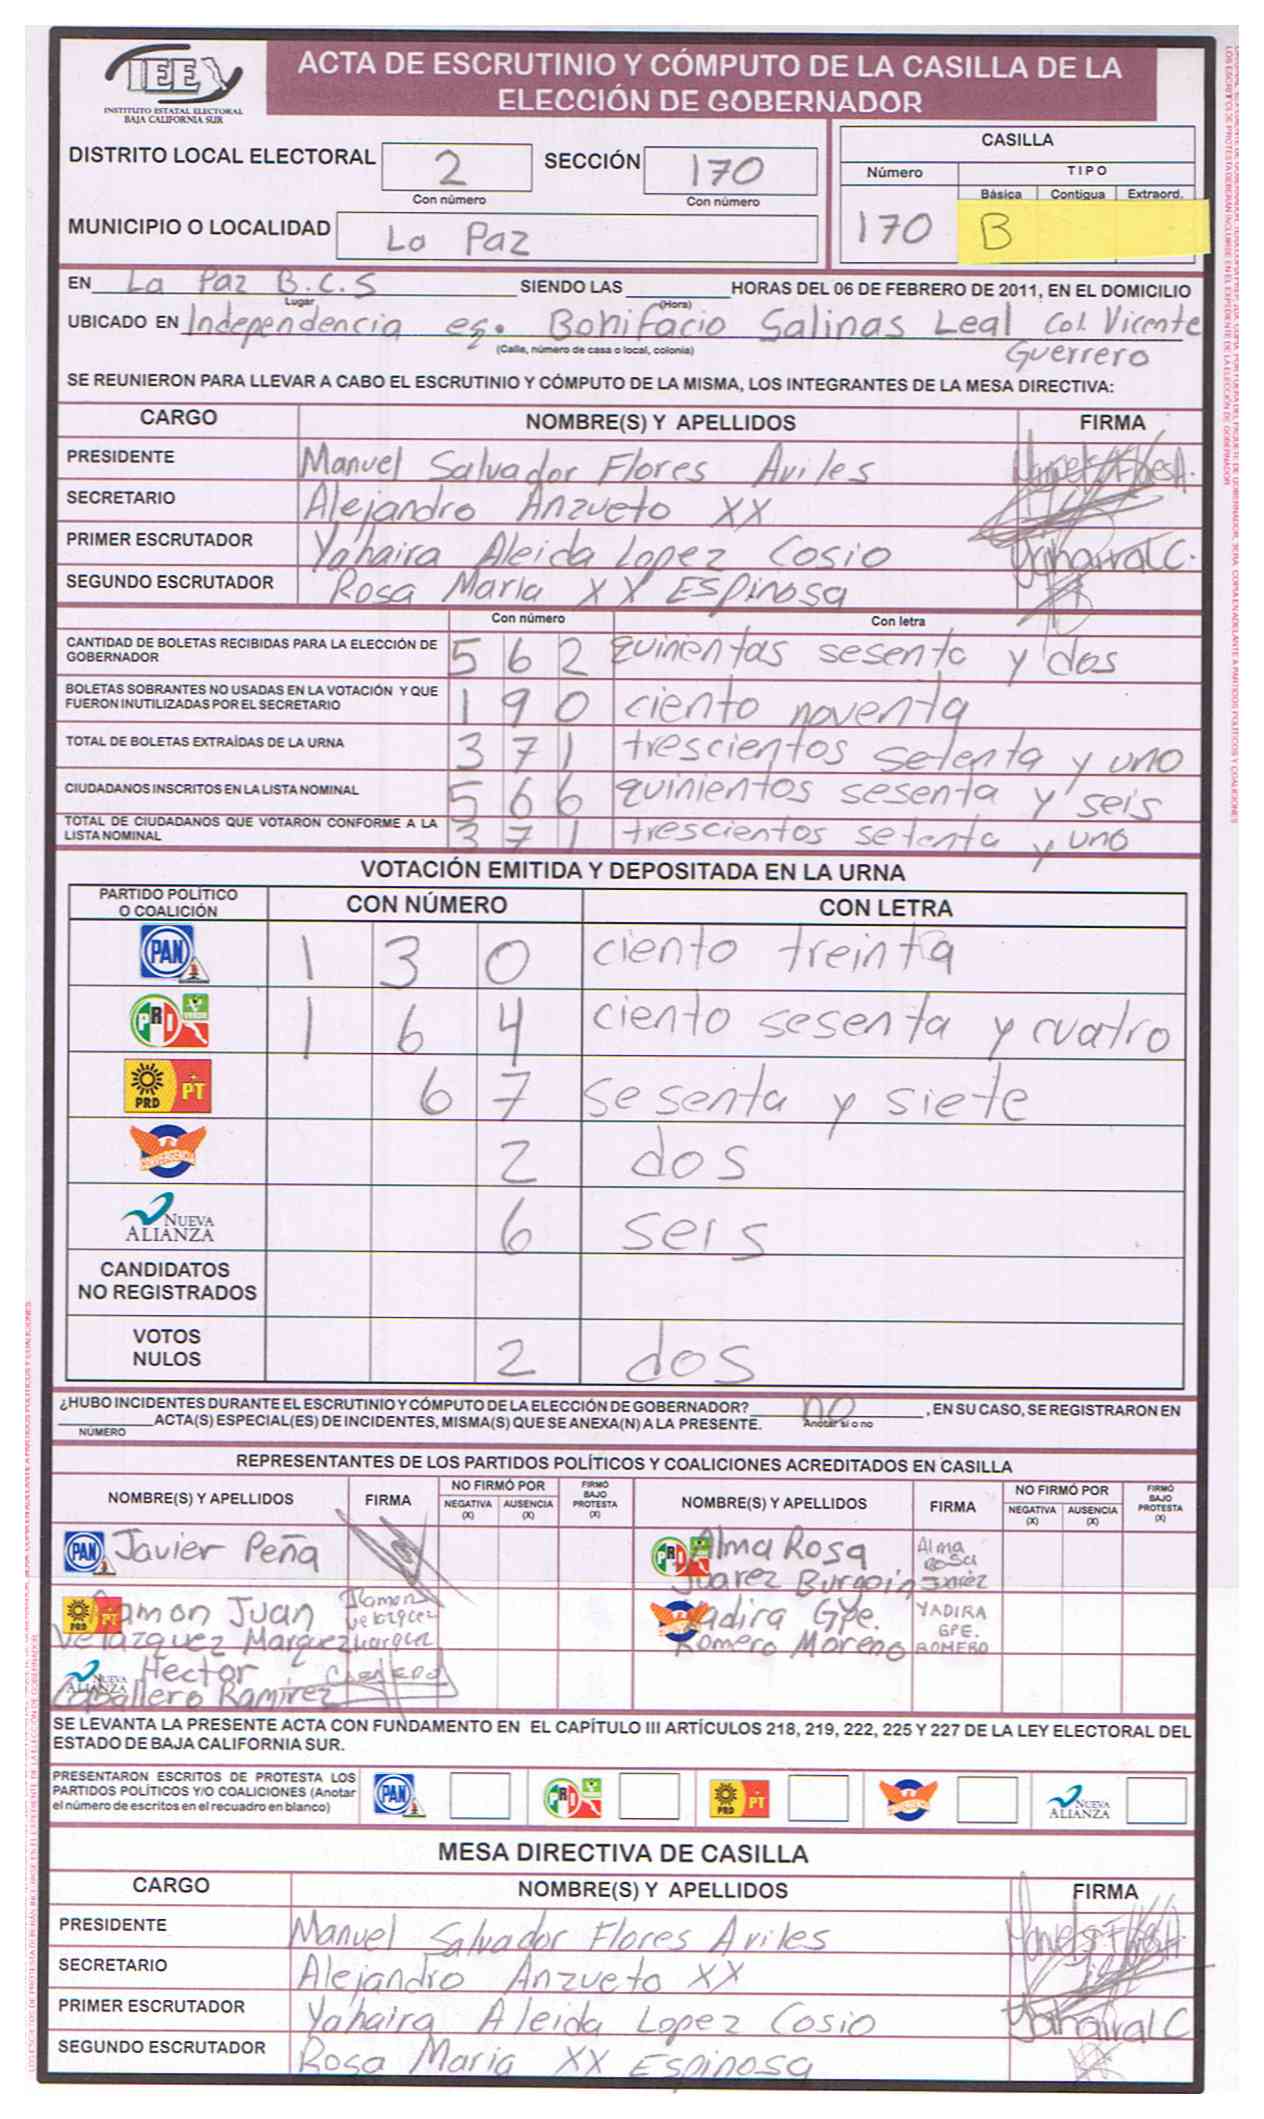 IEE
INSTITUTO ESTATAL ELECTORAL
BAJA CALIFORNIA SUR
ACTA DE ESCRUTINIO Y CÓMPUTO DE LA CASILLA DE LA
ELECCIÓN DE GOBERNADOR
DISTRITO LOCAL ELECTORAL 2 SECCIÓN 170
Con número Con número
MUNICIPIO O LOCALIDAD La Paz
CASILLA
Número TIPO
Básica Contigua Extraord.
170 B
EN La Paz B.C.S SIENDO LAS HORAS DEL 06 DE FEBRERO DE 2011, EN EL DOMICILIO
Lugar (Hora)
UBICADO EN Independencia esq. Bonifacio Salinas Leal Col. Vicente
(Calle, número de casa o local, colonia) Guerrero
SE REUNIERON PARA LLEVAR A CABO EL ESCRUTINIO Y CÓMPUTO DE LA MISMA, LOS INTEGRANTES DE LA MESA DIRECTIVA:
CARGO NOMBRE(S) Y APELLIDOS FIRMA
PRESIDENTE Manuel Salvador Flores Aviles
SECRETARIO Alejandro Anzueto XX
PRIMER ESCRUTADOR Yahaira Aleida Lopez Cosio
SEGUNDO ESCRUTADOR Rosa Maria XX Espinosa
Con número Con letra
CANTIDAD DE BOLETAS RECIBIDAS PARA LA ELECCIÓN DE
GOBERNADOR 562 quinientas sesenta y dos
BOLETAS SOBRANTES NO USADAS EN LA VOTACIÓN Y QUE
FUERON INUTILIZADAS POR EL SECRETARIO 190 ciento noventa
TOTAL DE BOLETAS EXTRAÍDAS DE LA URNA 371 trescientos setenta y uno
CIUDADANOS INSCRITOS EN LA LISTA NOMINAL 566 quinientos sesenta y seis
TOTAL DE CIUDADANOS QUE VOTARON CONFORME A LA
LISTA NOMINAL 371 trescientos setenta y uno
VOTACIÓN EMITIDA Y DEPOSITADA EN LA URNA
PARTIDO POLÍTICO
O COALICIÓN CON NÚMERO CON LETRA
PAN 130 ciento treinta
PRI VERDE 164 ciento sesenta y cuatro
PRD PT 67 sesenta y siete
CONVERGENCIA 2 dos
NUEVA ALIANZA 6 seis
CANDIDATOS
NO REGISTRADOS
VOTOS
NULOS 2 dos
¿HUBO INCIDENTES DURANTE EL ESCRUTINIO Y CÓMPUTO DE LA ELECCIÓN DE GOBERNADOR? no , EN SU CASO, SE REGISTRARON EN
ACTA(S) ESPECIAL(ES) DE INCIDENTES, MISMA(S) QUE SE ANEXA(N) A LA PRESENTE. Anotar si o no
NÚMERO
REPRESENTANTES DE LOS PARTIDOS POLÍTICOS Y COALICIONES ACREDITADOS EN CASILLA
NOMBRE(S) Y APELLIDOS FIRMA NO FIRMÓ POR NEGATIVA (X) AUSENCIA (X) FIRMÓ BAJO PROTESTA (X) NOMBRE(S) Y APELLIDOS FIRMA NO FIRMÓ POR NEGATIVA (X) AUSENCIA (X) FIRMÓ BAJO PROTESTA (X)
PAN Javier Peña
PRI Alma Rosa Alma Rosa
Juarez Burgoin Juarez
PRD PT Ramon Juan Ramon
Velazquez Marquez Velazquez Marquez
Yadira Gpe. YADIRA GPE.
Romero Moreno ROMERO
NUEVA ALIANZA Hector
Caballero Ramirez
SE LEVANTA LA PRESENTE ACTA CON FUNDAMENTO EN EL CAPÍTULO III ARTÍCULOS 218, 219, 222, 225 Y 227 DE LA LEY ELECTORAL DEL
ESTADO DE BAJA CALIFORNIA SUR.
PRESENTARON ESCRITOS DE PROTESTA LOS
PARTIDOS POLÍTICOS Y/O COALICIONES (Anotar
el número de escritos en el recuadro en blanco)
PAN PRI PRD PT NUEVA ALIANZA
MESA DIRECTIVA DE CASILLA
CARGO NOMBRE(S) Y APELLIDOS FIRMA
PRESIDENTE Manuel Salvador Flores Aviles
SECRETARIO Alejandro Anzueto XX
PRIMER ESCRUTADOR Yahaira Aleida Lopez Cosio
SEGUNDO ESCRUTADOR Rosa Maria XX Espinosa